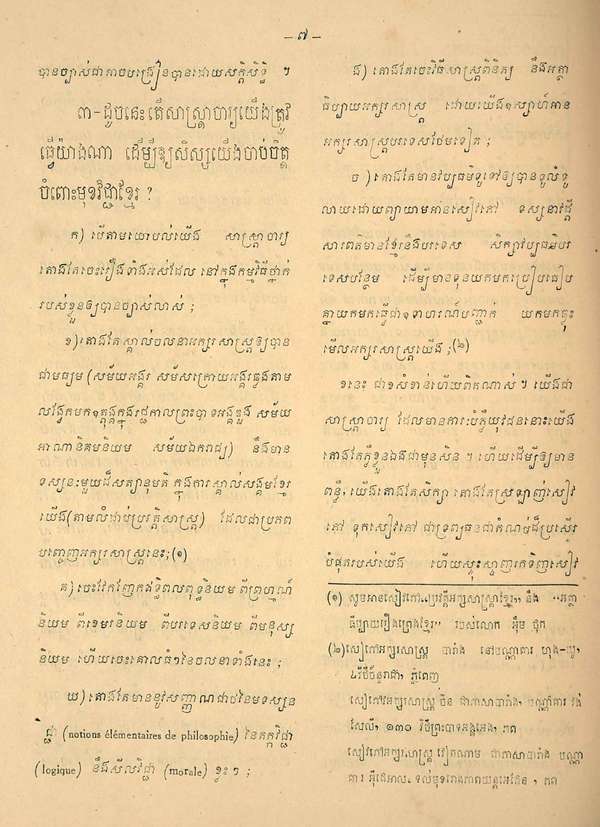 – ៧ –
បានច្បាស់ជាការបង្រៀនបានដោយសក្តិសិទ្ធិ ។
៣-ដូចនេះតើសាស្ត្រាចារ្យយើងត្រូវ
ធ្វើយ៉ាងណា ដើម្បីឱ្យសិស្សយើងចាប់ចិត្ត
ចំពោះមុខវិជ្ជាខ្មែរ ?
ក) បើតាមយោបល់យើង សាស្ត្រាចារ្យ
គោងតែចេះរឿងទាំងអស់ដែល នៅក្នុងកម្មវិធីថ្នាក់
របស់ខ្លួនឲ្យបានច្បាស់លាស់ ;
ខ) គោងតែស្គាល់ចលនាអក្សរសាស្ត្រឲ្យបាន
ជាមធ្យម (សម័យអង្គរ សម័យក្រោយអង្គរ
ក្នុងរជ្ជកាលព្រះបាទអង្គឌួង សម័យ
អាណានិគមនិយម សម័យឯករាជ្យ) នឹងមាន
ទស្សនៈមួយដ៏សត្យានុមតិ ក្នុងការស្គាល់សង្គមខ្មែរ
យើង (តាមលំដាប់ប្រវត្តិសាស្ត្រ) ដែលជាប្រភព
បញ្ចេញអក្សរសាស្ត្រនេះ; (១)
គ) ចេះវែកញែកឥទ្ធិពលពុទ្ធនិយម ពីព្រហ្មញ្ញ
និយម ពីខេមរនិយម ពីបរទេសនិយម ពីមនុស្ស
និយម ហើយចេះគោលធំៗនៃចលនាទាំងនេះ ;
ឃ) គោងតែមាននូវសញ្ញាណដំបូងនៃទស្សន
វិជ្ជា (notions élémentaires de philosophie) នៃតក្កវិជ្ជា
(logique) នឹងសីលវិជ្ជា (morale) ខ្លះៗ ;
ង) គោងតែចេះវិធីសាស្ត្រពិនិត្យ នឹងអត្ថា
ធិប្បាយអក្សរសាស្ត្រ ដោយយើងឧស្សាហ៍អាន
អក្សរសាស្ត្របរទេសថែមទៀត ;
ច) គោងតែមានវប្បធម៌ទូទៅឲ្យបានទូលំទូ
លាយដោយព្យាយាមអានសៀវភៅ ទស្សនាវដ្តី
សារព័ត៌មានខ្មែរនឹងបរទេស សិក្សាវប្បធម៌បរ
ទេសបន្ថែម ដើម្បីមានទុនយកមកប្រៀបធៀប
គ្នាយកមកធ្វើជាឧទាហរណ៍បញ្ជាក់ យកមកឆ្លុះ
មើលអក្សរសាស្ត្រយើង ; (២)
ខនេះ ជាខសំខាន់ហើយពិតណាស់ ។ យើងជា
សាស្ត្រាចារ្យ ដែលមានការៈបំភ្លឺយុវជននោះយើង
គោងតែភ្លឺខ្លួនឯងជាមុនសិន ។ ហើយដើម្បីឲ្យមាន
ពន្លឺ, យើងគោងតែសិក្សា គោងតែស្រឡាញ់សៀវ
ភៅ ទុកសៀវភៅ ជាទ្រព្យធនជាកំណប់ដ៏ប្រសើរ
បំផុតរបស់យើង ហើយស្វះស្វែងរកទិញសៀវ
(១) សូមអានសៀវភៅ „ប្រវត្តិអក្សរសាស្ត្រខ្មែរ” នឹង “អត្ថា
ធិប្បាយរឿងព្រេងខ្មែរ” របស់លោក អ៊ឹម ជុក
(២) សៀវភៅអក្សរសាស្ត្រ បារាំង នៅបណ្ណាគារ ហុង-
វិថី ភ្នំពេញ
សៀវភៅអក្សរសាស្ត្រ ចិន ជាភាសាបារាំង, បណ្ណាគារ វ៉ង់
សែលី, ១៣១ វិថីព្រះបាទអង្គអេង, ភព
សៀវភៅអក្សរសាស្ត្រ វៀតណាម ជាភាសាបារាំង បណ្ណា
គារ អ៊ីដេអាល, ទល់មុខរោងភាពយន្តអេដែន , ភព